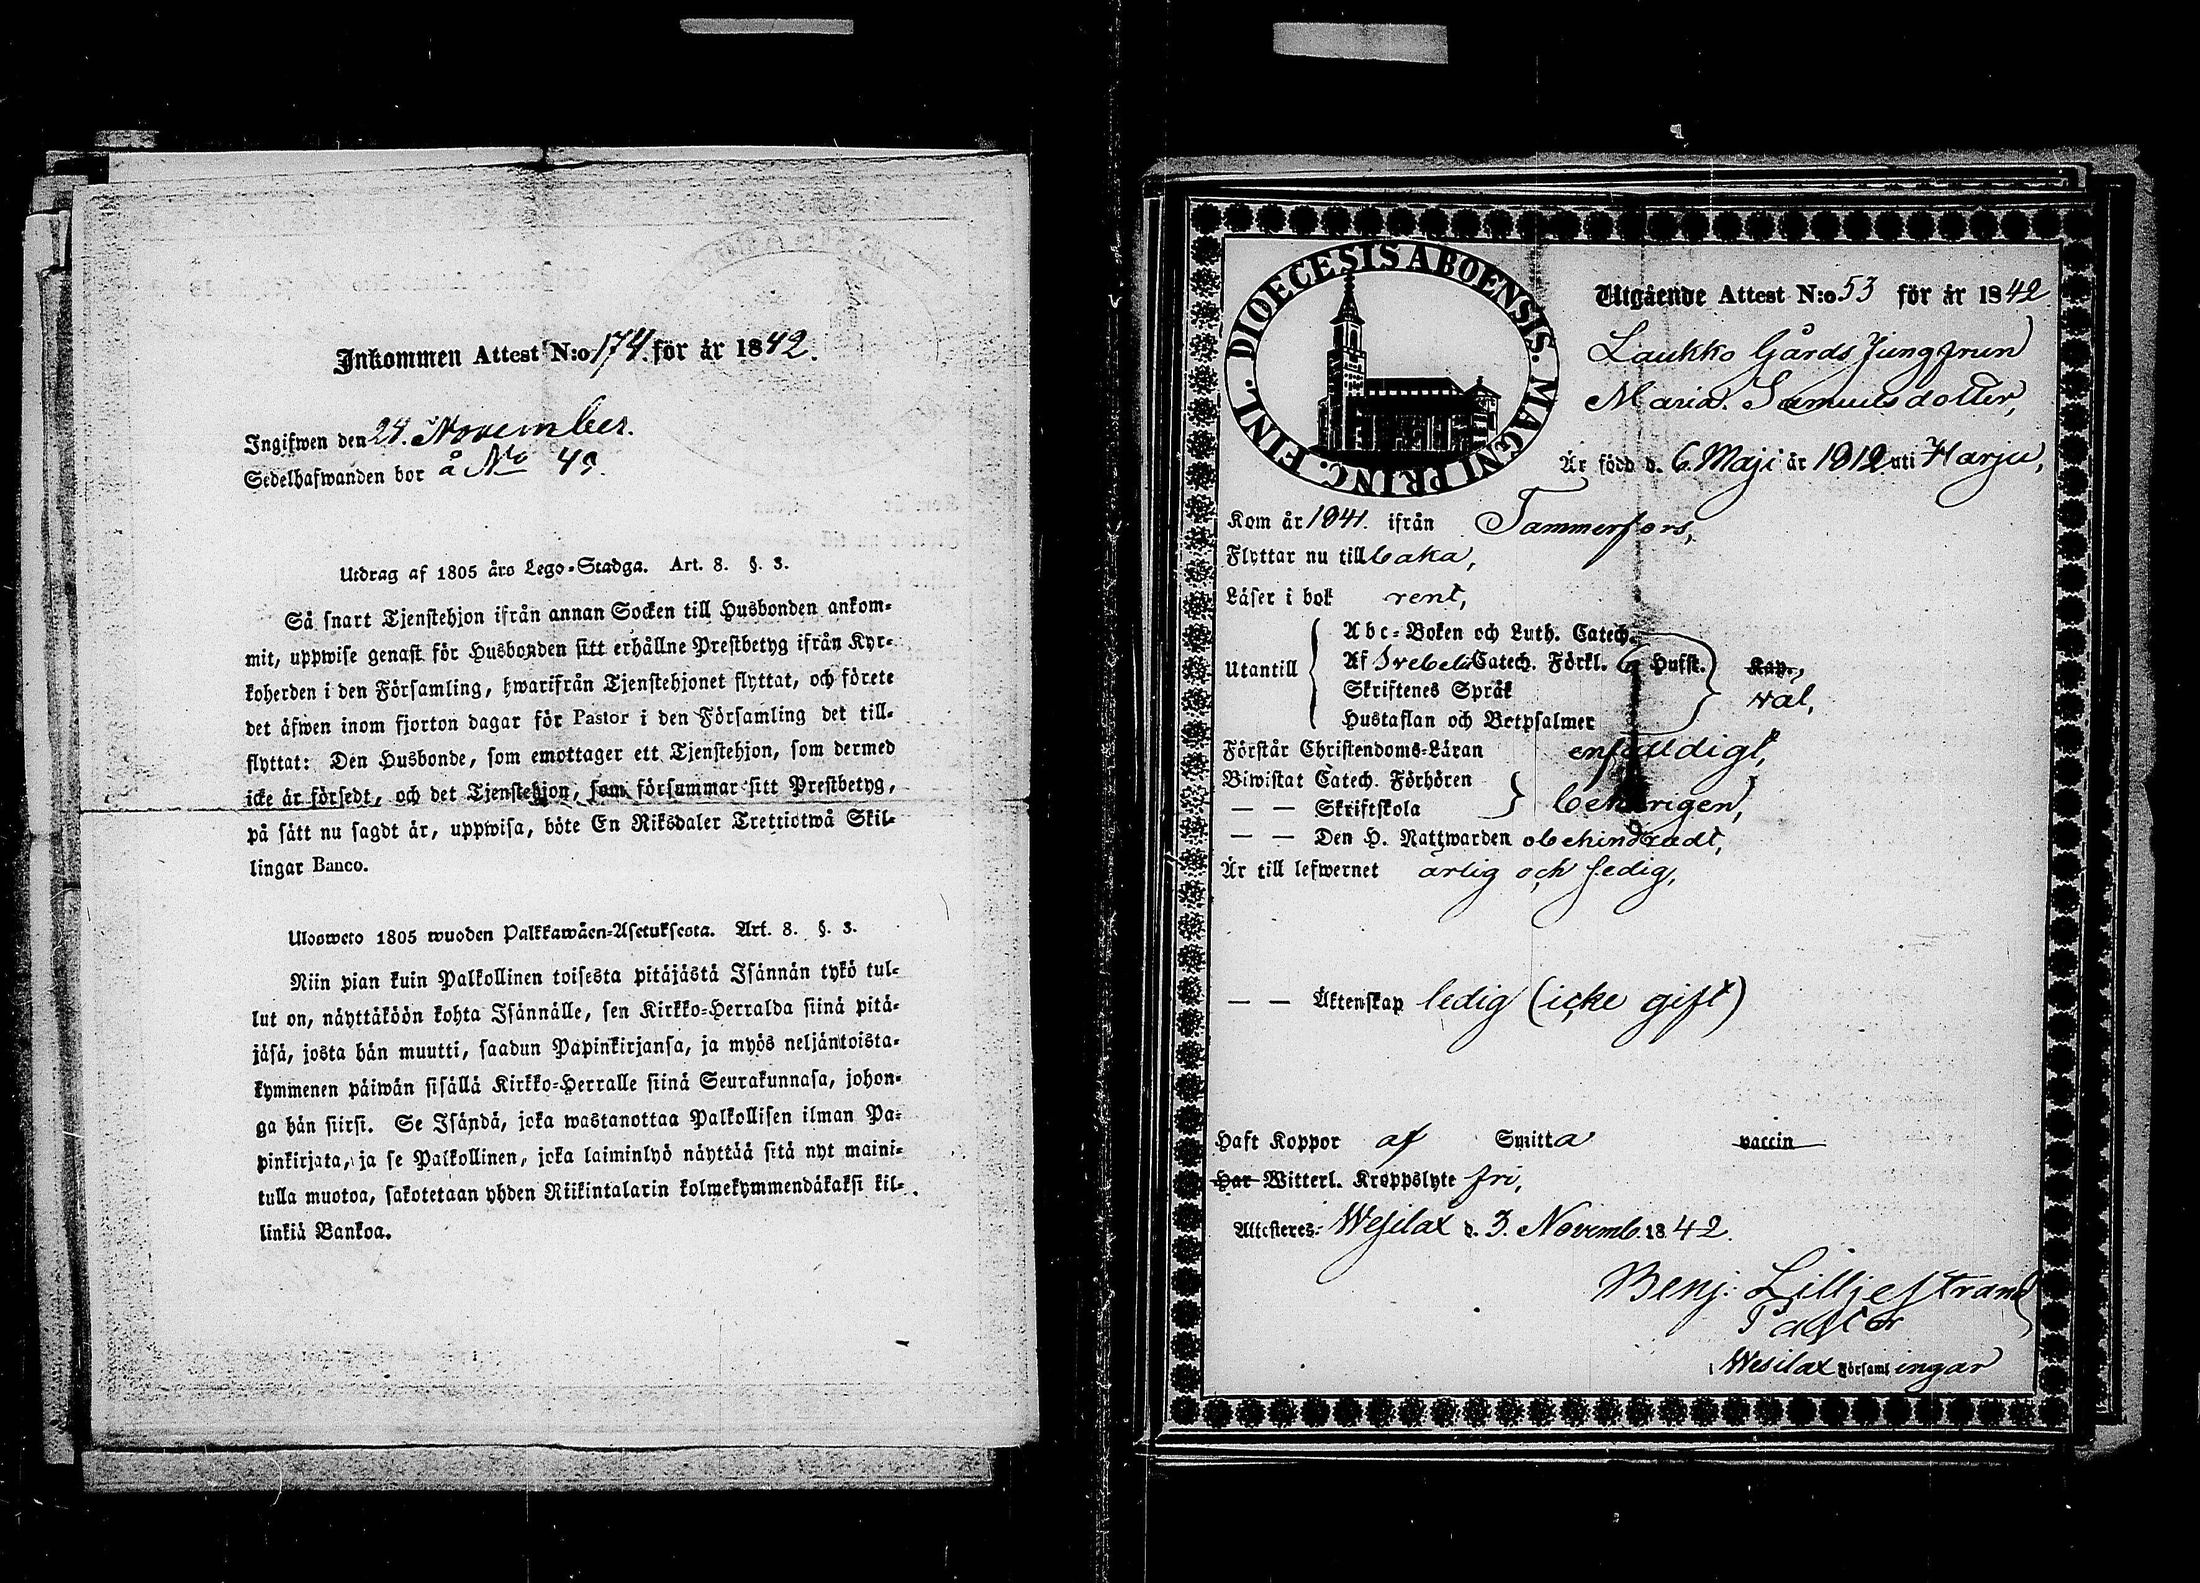 Inkommen Attest N:o 174. för år 1842.
Ingifwen den 24. November.
Sedelhafwanden bor å No 49.
Utdrag af 1805 års Lego-Stadga. Art. 8. §. 3.
Så snart Tjenstehjon ifrån annan Socken till Husbonden ankom-
mit, uppwise genast för Husbonden sitt erhållne Prestbetyg ifrån Kyr-
koherden i den Församling, hwarifrån Tjenstehjonet flyttat, och förete
det äfwen inom fjorton dagar för Pastor i den Församling det till-
flyttat: Den Husbonde, som emottager ett Tjenstehjon, som dermed
icke är försedt, och det Tjenstehjon, som försummar sitt Prestbetyg,
på sätt nu sagdt är, uppwisa, böte En Riksdaler Trettiotwå Skil-
lingar Banco.
Ulosweto 1805 wuoden Palkkawäen-Asetuksesta. Art. 8. §. 3.
Niin pian kuin Palkollinen toisesta pitäjästä Isännän tykö tul-
lut on, näyttäköön kohta Isännälle, sen Kirkko-Herralda siinä pitä-
jäsä, josta hän muutti, saadun Papinkirjansa, ja myös neljäntoista-
kymmenen päiwän sisällä Kirkko-Herralle siinä Seurakunnasa, johon-
ga hän siirsi. Se Isändä, joka wastanottaa Palkollisen ilman Pa-
pinkirjata, ja se Palkollinen, joka laiminlyö näyttää sitä nyt maini-
tulla muotoa, sakotetaan yhden Riikintalarin kolmekymmendäkaksi kil-
linkiä Bankoa.
DIOECESIS ABOENSIS. MAGNI PRINC. FINL.
Utgående Attest N:o 53 för år 1842
Laukko Gårds Jungfrun
Maria Samuelsdotter,
Är född d. 6 Maji år 1812 uti Harju,
Kom år 1841. ifrån Tammerfors,
Flyttar nu till baka,
Läser i bok rent,
Abc-Boken och Luth. Catech.
Utantill Af Svebeli Catech. Förkl. Hufst. Kap.,
Skriftenes Språk wäl,
Hustaflan och Botpsalmer
Förstår Christendoms-Läran enfaldigt,
Biwistat Catech. Förhören
— — Skriftskola behörigen,
— — Den H. Nattwarden obehindradt,
Är till lefwernet ärlig och sedig,
— — Äktenskap ledig (icke gift)
Haft Koppor af Smitta vaccin
Har Witterl. Kroppslyte fri,
Attesteres: Wesilax d. 3. Novemb. 1842.
Benj: Lilljestrand
Pastor
Wesilax Församlingar